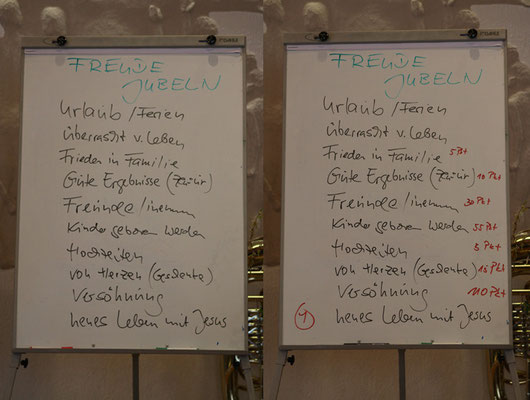 FREUDE
JUBELN
Urlaub / Ferien
Überrascht v. Leben
Frieden in Familie
Gute Ergebnisse
Freunde/innen
Kinder geboren werden
Hochzeiten
von Herzen (Geschenke)
Versöhnung
neues Leben mit Jesus
FREUDE
JUBELN
Urlaub / Ferien
Überrascht v. Leben
Frieden in Familie 5 Pkt
Gute Ergebnisse 10 Pkt
Freunde/innen 30 Pkt
Kinder geboren werden 55 Pkt
Hochzeiten 5 Pkt
von Herzen (Geschenke) 15 Pkt
Versöhnung 110 Pkt
neues Leben mit Jesus